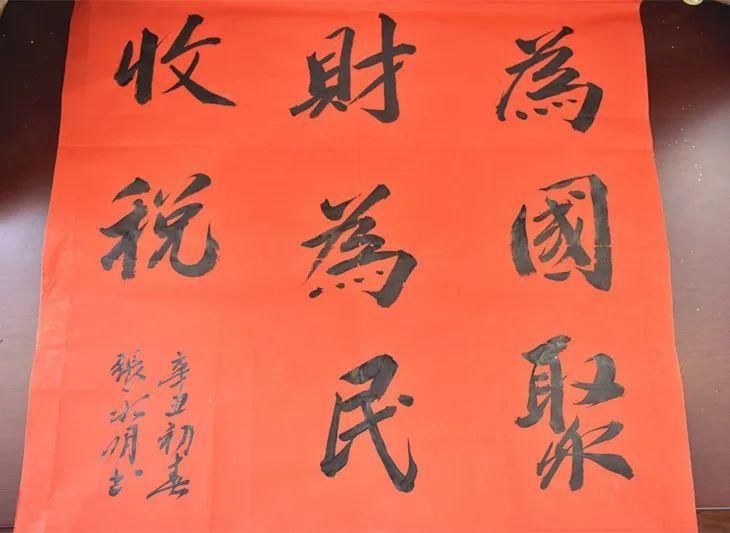 為國聚
財為民
收税
辛丑初春
張永明书